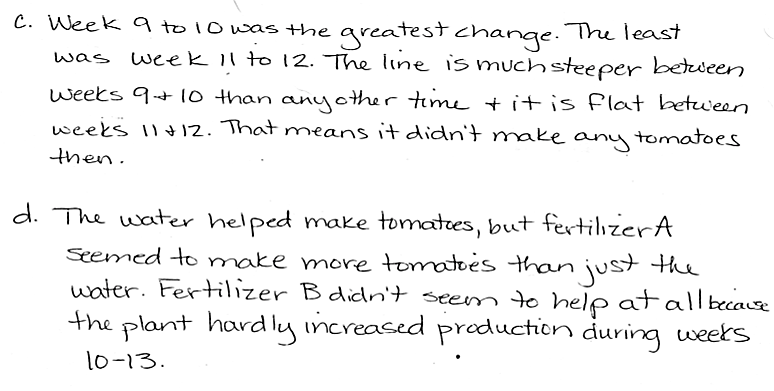 c. Week 9 to 10 was the greatest change. The least
was week 11 to 12. The line is much steeper between
weeks 9 + 10 than any other time + it is flat between
weeks 11 + 12. That means it didn't make any tomatoes
then.
d. The water helped make tomatoes, but fertilizer A
seemed to make more tomatoes than just the
water. Fertilizer B didn't seem to help at all because
the plant hardly increased production during weeks
10-13.